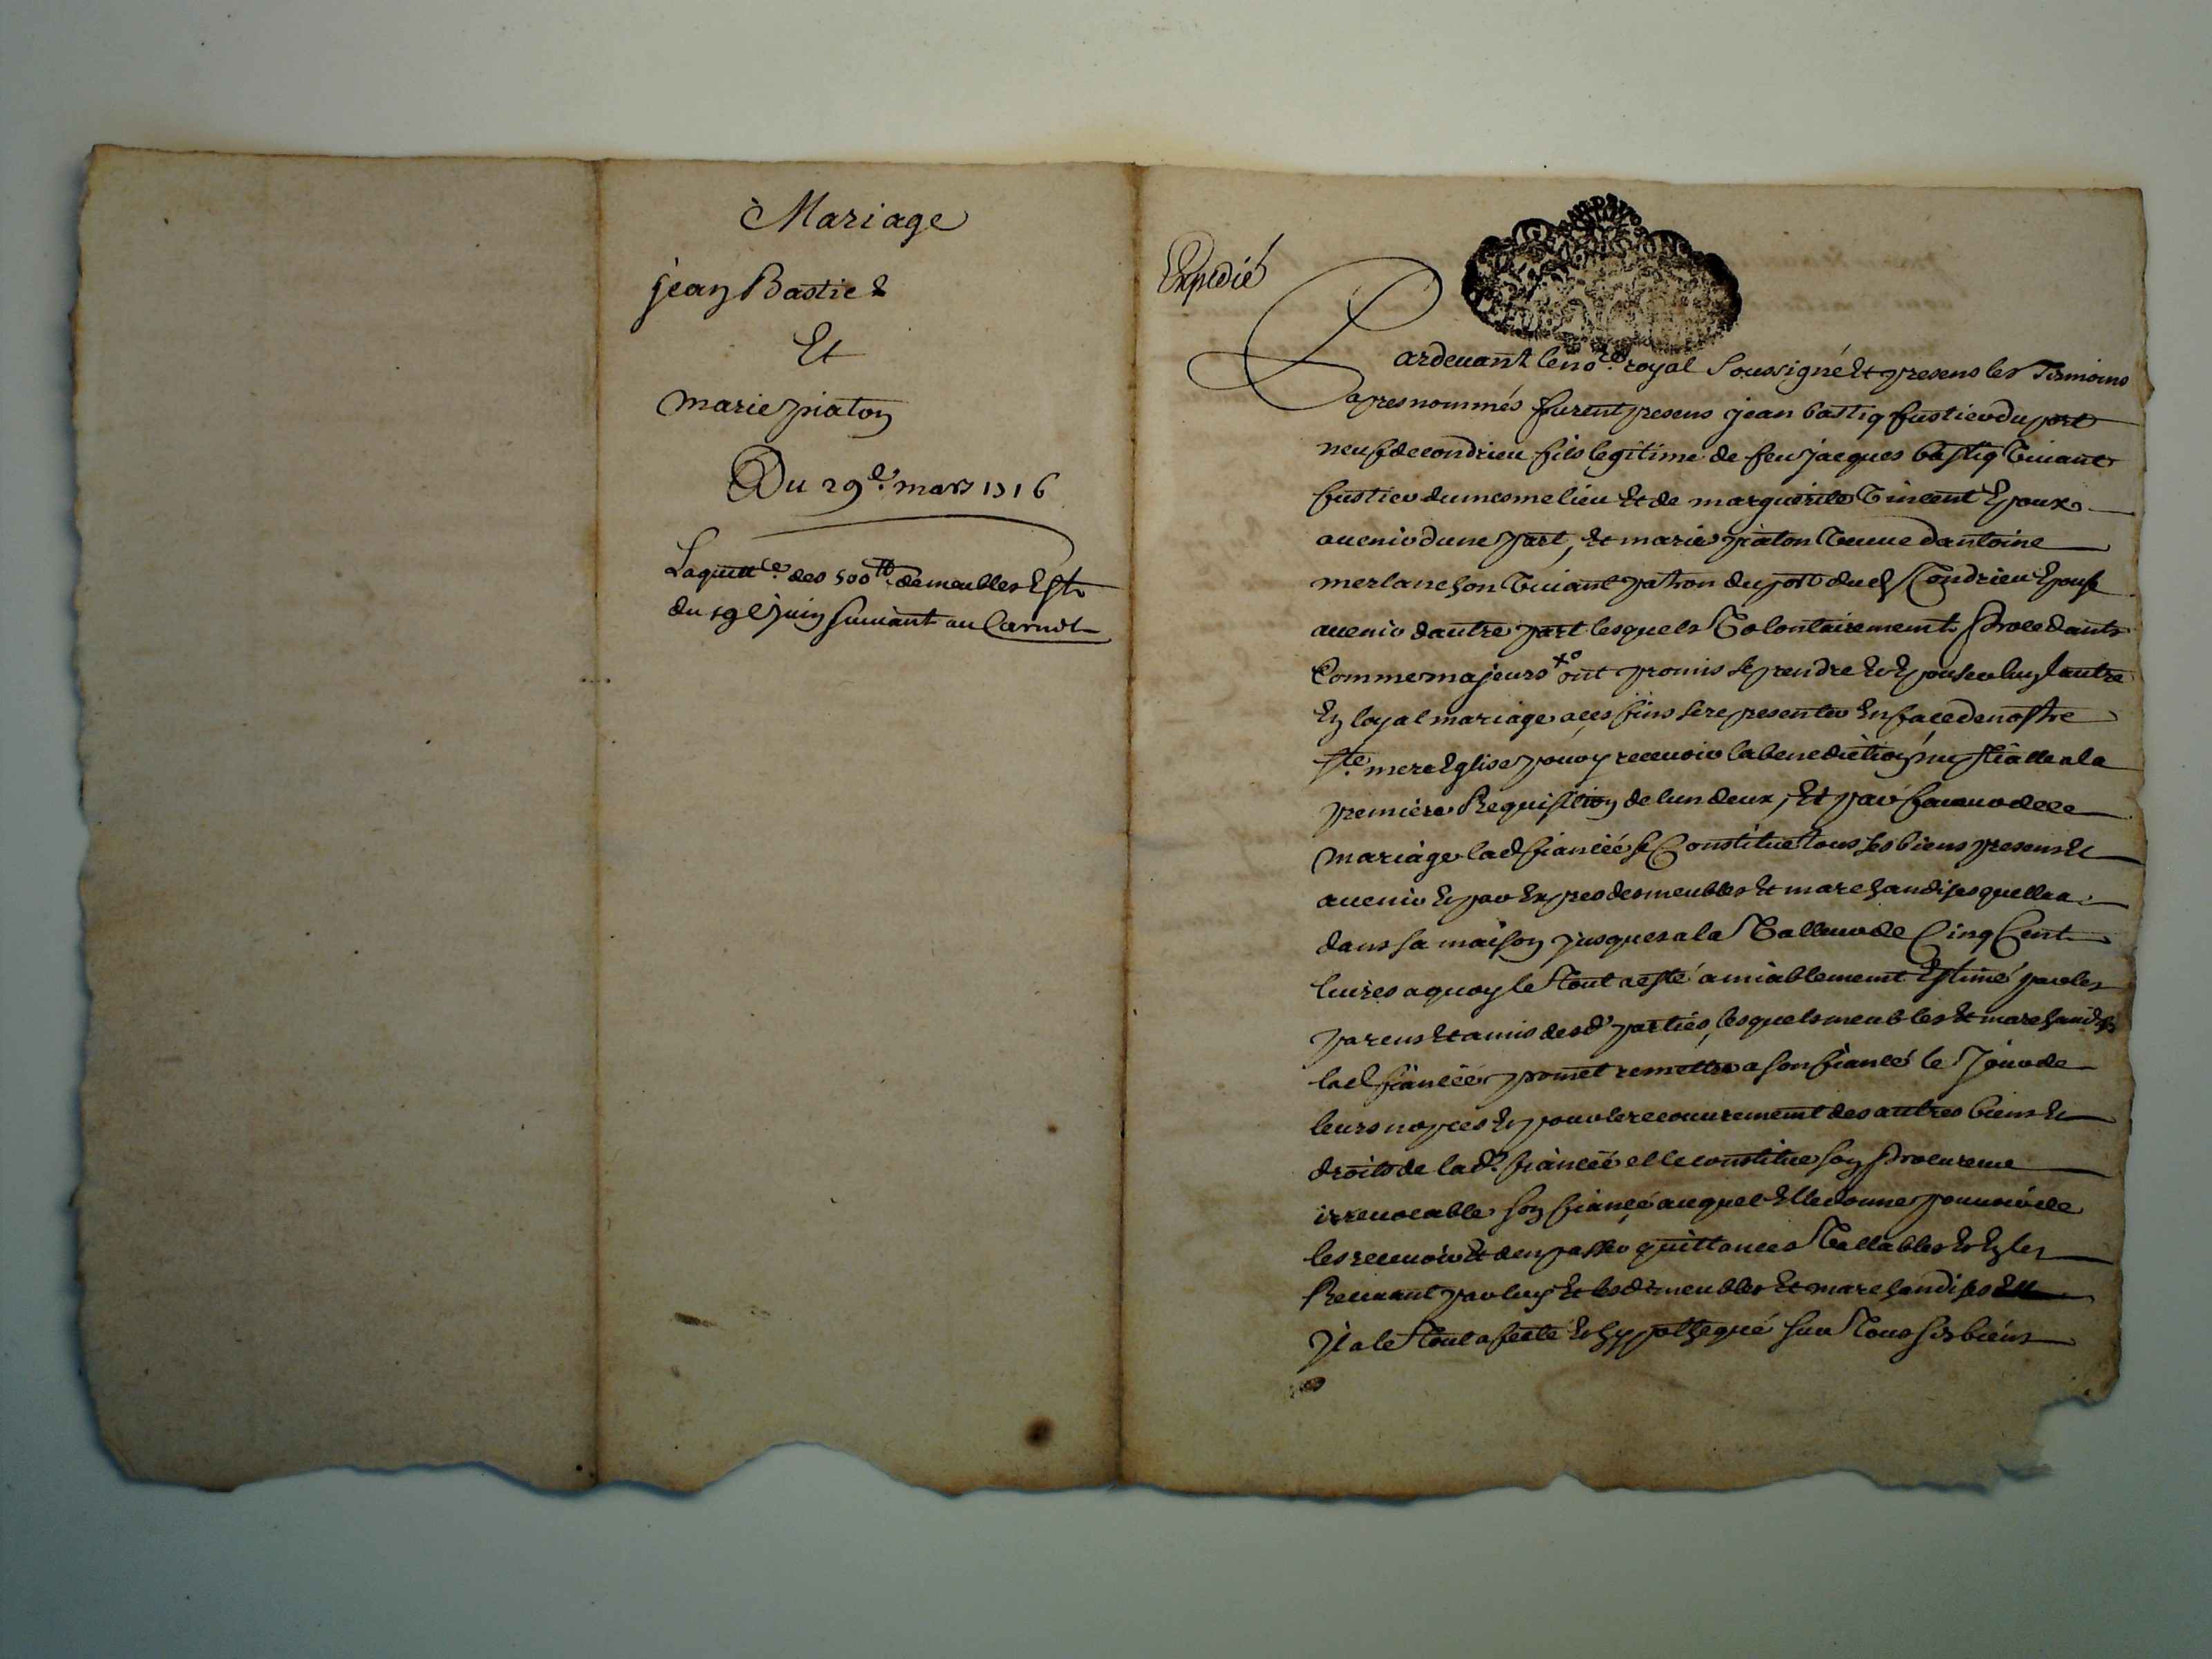 Mariage
jean Bastie
Et
marie piaton
Du 29e. mars 1716
Laquittce. des 500 tt. de meubles Est
du 19e juin suivant au Carnet
Expedié
Pardevant le nore. royal soussigné Et presens les Temoins
apres nommés furent presens jean bastiq fustier du port
neuf de condrieu fils legitime de feu jacques bastiq vivant
fustier du mesme lieu Et de marguerite vincent Epoux
avenir dune part, Et marie piaton veuve dantoine
merlanchon vivant patron du port dud Condrieu Epouse
avenir dautre part lesquels volontairement procedants
comme majeurs ont promis se prendre Et Epouser luy lautre
En loyal mariage a ces fins se representer En face de nostre
ste. mere Eglise pour y recevoir la benediction nuptialle a la
premiere Requisition de lun deux, Et par faveur de ce
mariage lad fiancée se Constitue tous ses biens presens Et
avenir Et par Expres des meubles Et marchandises quelle a
dans sa maison jusques a la valleur de Cinq Cent
livres a quoy le tout a esté amiablement Estimé par les
parens Et amis desd. parties, lesquels meubles Et marchandises
lad fiancée promet remettre a son fiancé le jour de
leurs nopces Et pour le recouvrement des autres biens Et
droits de lad. fiancée elle constitue son procureur
irrevocable son fiancé auquel Elle donne pouvoir de
les recevoir Et den passer quittances vallables Et En les
Recevant par luy Et lesd. meubles Et marchandises
Il a le tout afecté Et hypothequé sur tous ses biens